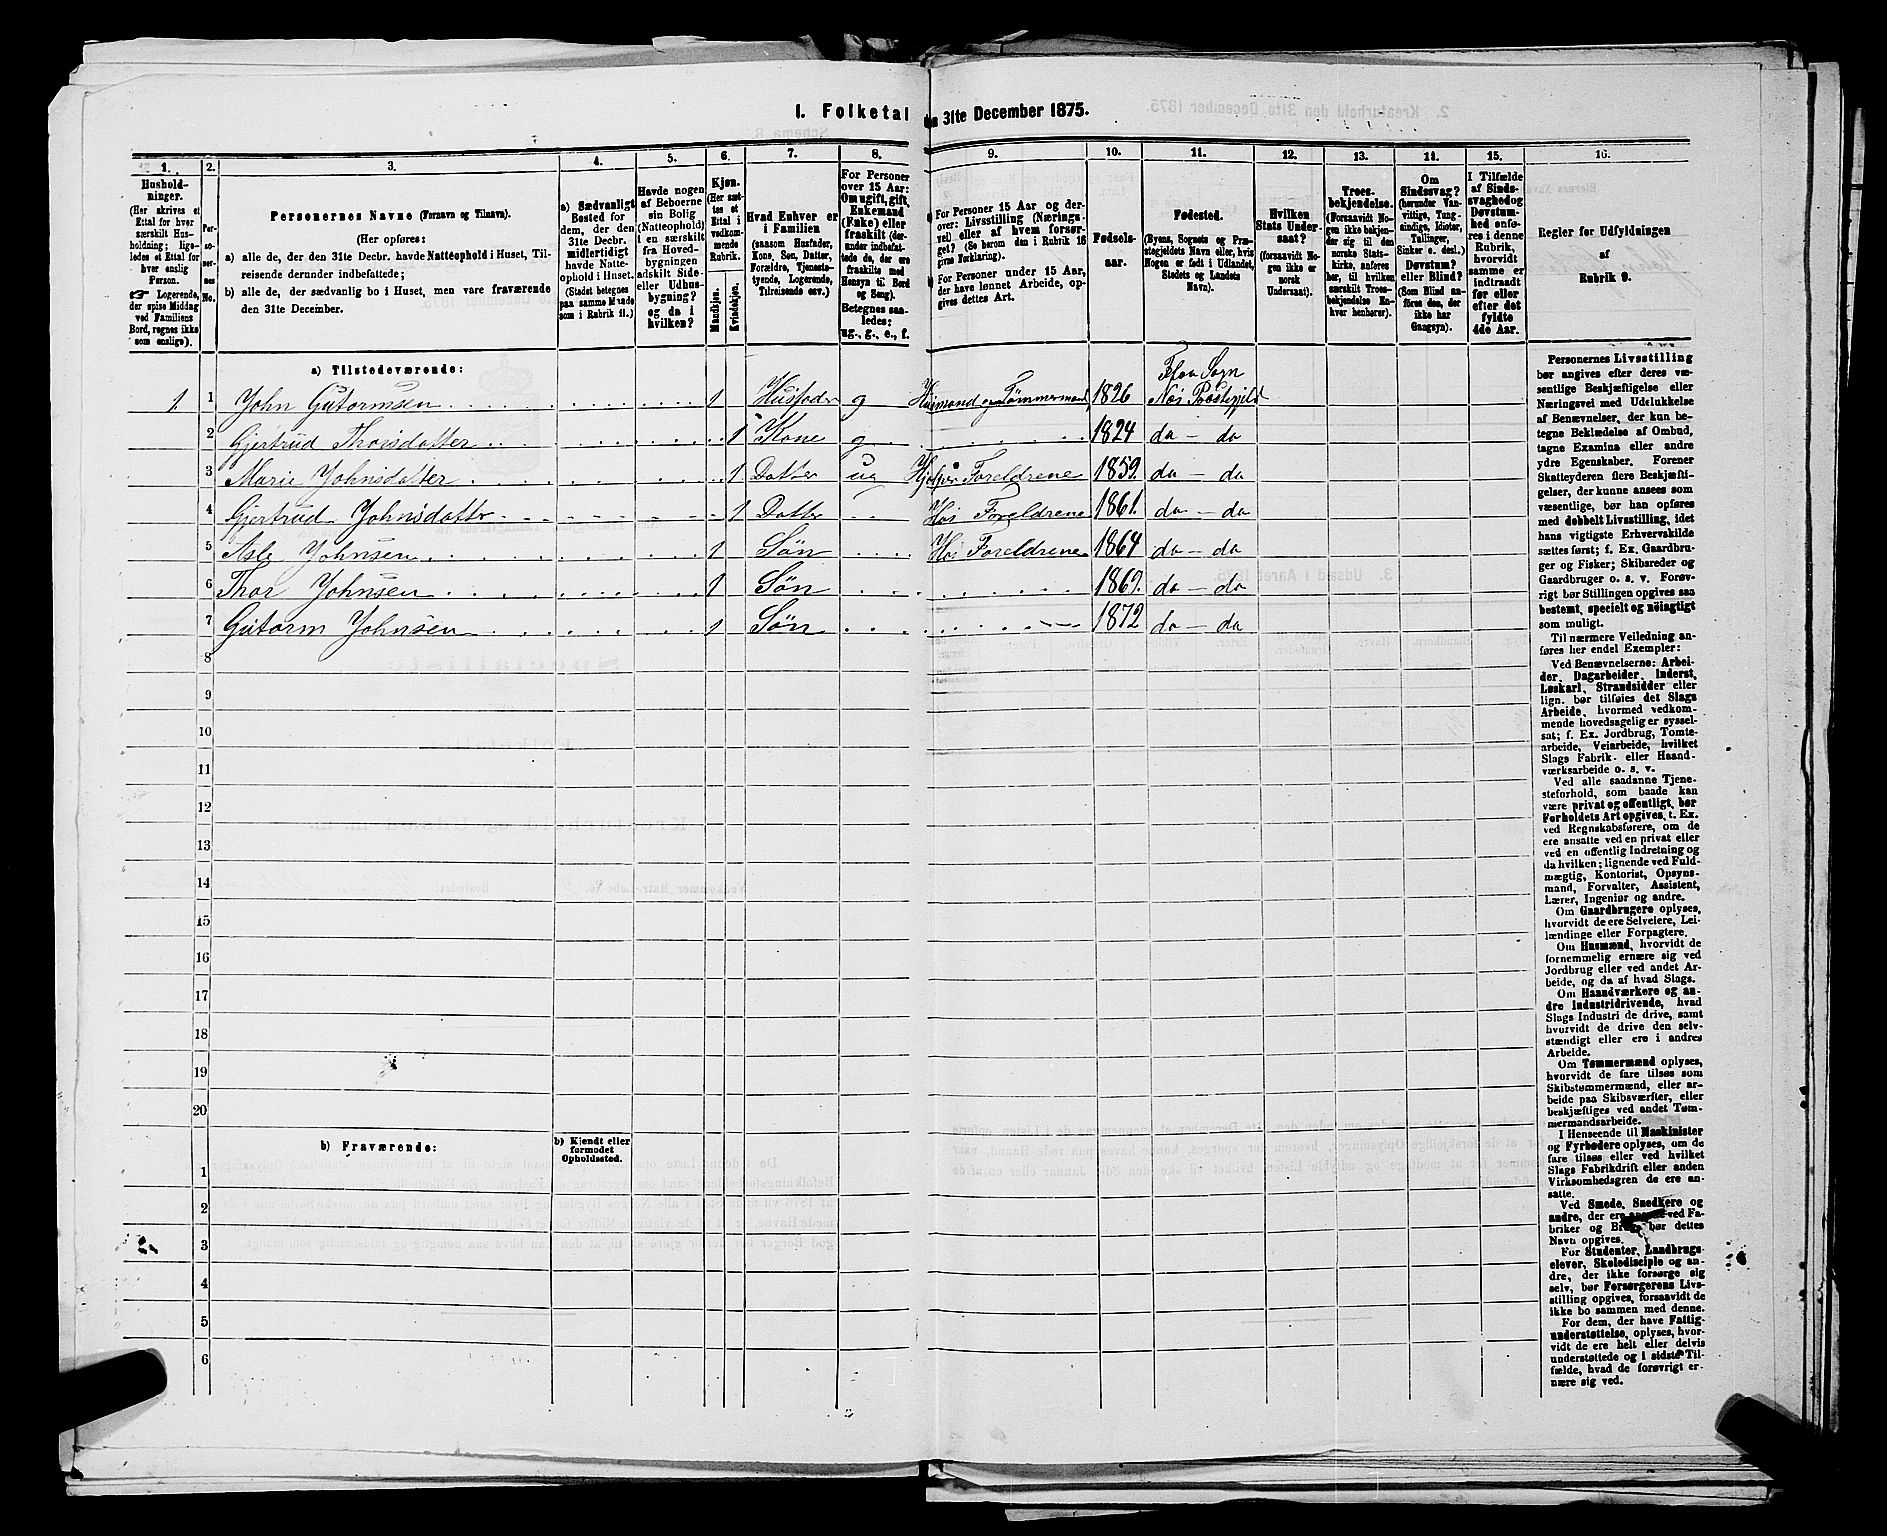 1. Folketal den 31te December 1875.
1.
2.
3.
4.
5.
6.
7.
8.
9.
10.
11.
12.
13.
14.
15.
16.
Husholdninger.
(Her skrives et Ettal for hver særskilt Husholdning; ligeledes et Ettal for hver enslig Person.
☞ Logerende, der spise Middag ved Familiens Bord, regnes ikke som enslige).
Personernes No.
Personernes Navne (Fornavn og Tilnavn).
(Her opføres:
a) alle de, der den 31te Decbr. havde Natteophold i Huset, Tilreisende derunder indbefattede;
b) alle de, der sædvanlig bo i Huset, men vare fraværende den 31te December.
a) Sædvanligt Bosted for dem, der den 31te Decbr. midlertidigt havde Natteophold i Huset.
(Stedet betegnes paa samme Maade som i Rubrik 11.)
Havde nogen af Beboerne sin Bolig (Natteophold) i en særskilt fra Hovedbygningen adskilt Side- eller Udhusbygning? og da i hvilken?
Kjøn.
(Her sættes et Ettal i vedkommende Rubrik.
Mandkjøn.
Kvindekjøn.
Hvad Enhver er i Familien
(saasom Husfader, Kone, Søn, Datter, Forældre, Tjenestetyende, Logerende, Tilreisende osv.)
For Personer over 15 Aar: Om ugift, gift, Enkemand (Enke) eller fraskilt (derunder indbefattede de, der ere fraskilte med Hensyn til Bord og Seng).
Betegnes saaledes: ug., g., e., f.
For Personer 15 Aar og derover: Livsstilling (Næringsvei) eller af hvem forsørget? (Se herom den i Rubrik 16 givne Forklaring).
For Personer under 15 Aar, der have lønnet Arbeide, opgives dettes Art.
Fødselsaar.
Fødested.
(Byens, Sognets og Præstegjeldets Navn eller, hvis Nogen er født i Udlandet, Stedets og Landets Navn).
Hvilken Stats Undersaat?
(forsaavidt Nogen ikke er norsk Undersaat).
Troesbekjendelse.
(Forsaavidt Nogen ikke bekjender sig til den norske Statskirke, anføres her, til hvilken særskilt Troesbekjendelse Enhver henhører).
Om Sindssvag? (herunder Vanvittige, Tungsindige, Idioter, Tullinger, Sinker o. desl.)
Døvstum? eller Blind? (Som Blind anføres den, der ikke har Gangsyn).
I Tilfælde af Sindssvaghed og Døvstumhed anføres i denne Rubrik, hvorvidt samme er indtraadt før eller efter det fyldte 4de Aar.
Regler for Udfyldningen af Rubrik 9.
a) Tilstedeværende:
Flaa Sogn
1 1 John Gutormsen 1 Husfader g Husmand og Tømmermand 1826 Næs Præstegjeld
2 Gjertrud Thorsdatter 1 Kone g 1824 do — do
3 Marie Johnsdatter 1 Datter ug Hjelper Foreldrene 1859. do — do
4 Gjertrud Johnsdatter 1 Datter Hos Foreldrene 1861. do — do
5 Asle Johnsen 1 Søn Hos Foreldrene 1864 do — do
6 Thor Johnsen 1 Søn 1869. do — do
7 Gutorm Johnsen 1 Søn 1872 do — do
8
9
10
11
12
13
14
15
16
17
18
19
20
b) Fraværende:
b) Kjendt eller formodet Opholdssted.
1
2
3
4
5
6
Personernes Livsstilling
bør angives efter deres væsentlige Beskjæftigelse eller
Næringsvei med Udelukkelse
af Benævnelser, der kun betegne Beklædelse af Ombud,
tagne Examina eller andre
ydre Egenskaber. Forener
Skatteyderen flere Beskjæftigelser, der kunne ansees som
væsentlige, bør han opføres
med dobbelt Livsstilling, idet
hans vigtigste Erhvervskilde
sættes først; f. Ex. Gaardbruger og Fisker; Skibsreder og
Gaardbruger o. s. v. Forøvrigt bør Stillingen opgives saa
bestemt, specielt og nøiagtigt
som muligt.
Til nærmere Veiledning anføres her endel Exempler:
Ved Benævnelserne: Arbeider, Dagarbeider, Inderst,
Løskarl, Strandsidder eller
lign. bør tilføies det Slags
Arbeide, hvormed vedkommende hovedsagelig er sysselsat; f. Ex. Jordbrug, Tomtearbeide, Veiarbeide, hvilket
Slags Fabrik- eller Haandværksarbeide o. s. v.
Ved alle saadanne Tjenesteforhold, som baade kan
være privat og offentligt, bør
Forholdets Art opgives, t. Ex.
ved Regnskabsførere, om de
ere ansatte ved en privat eller
ved en offentlig Indretning og
da hvilken; lignende ved Fuldmægtig, Kontorist, Opsynsmand, Forvalter, Assistent,
Lærer, Ingeniør og andre.
Om Gaardbrugere oplyses,
hvorvidt de ere Selveiere, Leilændinge eller Forpagtere.
Om Husmænd, hvorvidt de
fornemmelig ernære sig ved
Jordbrug eller ved andet Arbeide, og da af hvad Slags.
Om Haandværkere og andre industridrivende, hvad
Slags Industri de drive, samt
hvorvidt de drive den selvstændigt eller ere i andres
Arbeide.
Om Tømmermænd oplyses,
hvorvidt de fare tilsøs som
Skibstømmermænd, eller arbeide paa Skibsværfter, eller
beskjæftiges ved andet Tømmermandsarbeide.
I Henseende til Maskinister
og Fyrbødere oplyses, om de
fare tilsøs eller ved hvilket
Slags Fabrikdrift eller anden
Virksomhedsgren de ere ansatte.
Ved Smede, Snedkere og
andre, der ere ansatte ved Fabriker og Brug, bør dettes
Navn opgives.
For Studenter, Landbrugselever, Skoledisciple og andre, der ikke forsørge sig
selv, bør Forsørgerens Livsstilling opgives, forsaavidt de
ikke bo sammen med denne.
For dem, der have Fattigunderstøttelse, oplyses, hvorvidt de ere helt eller delvis
understøttede og i sidste Tilfælde, hvad de forøvrigt ernære sig ved.